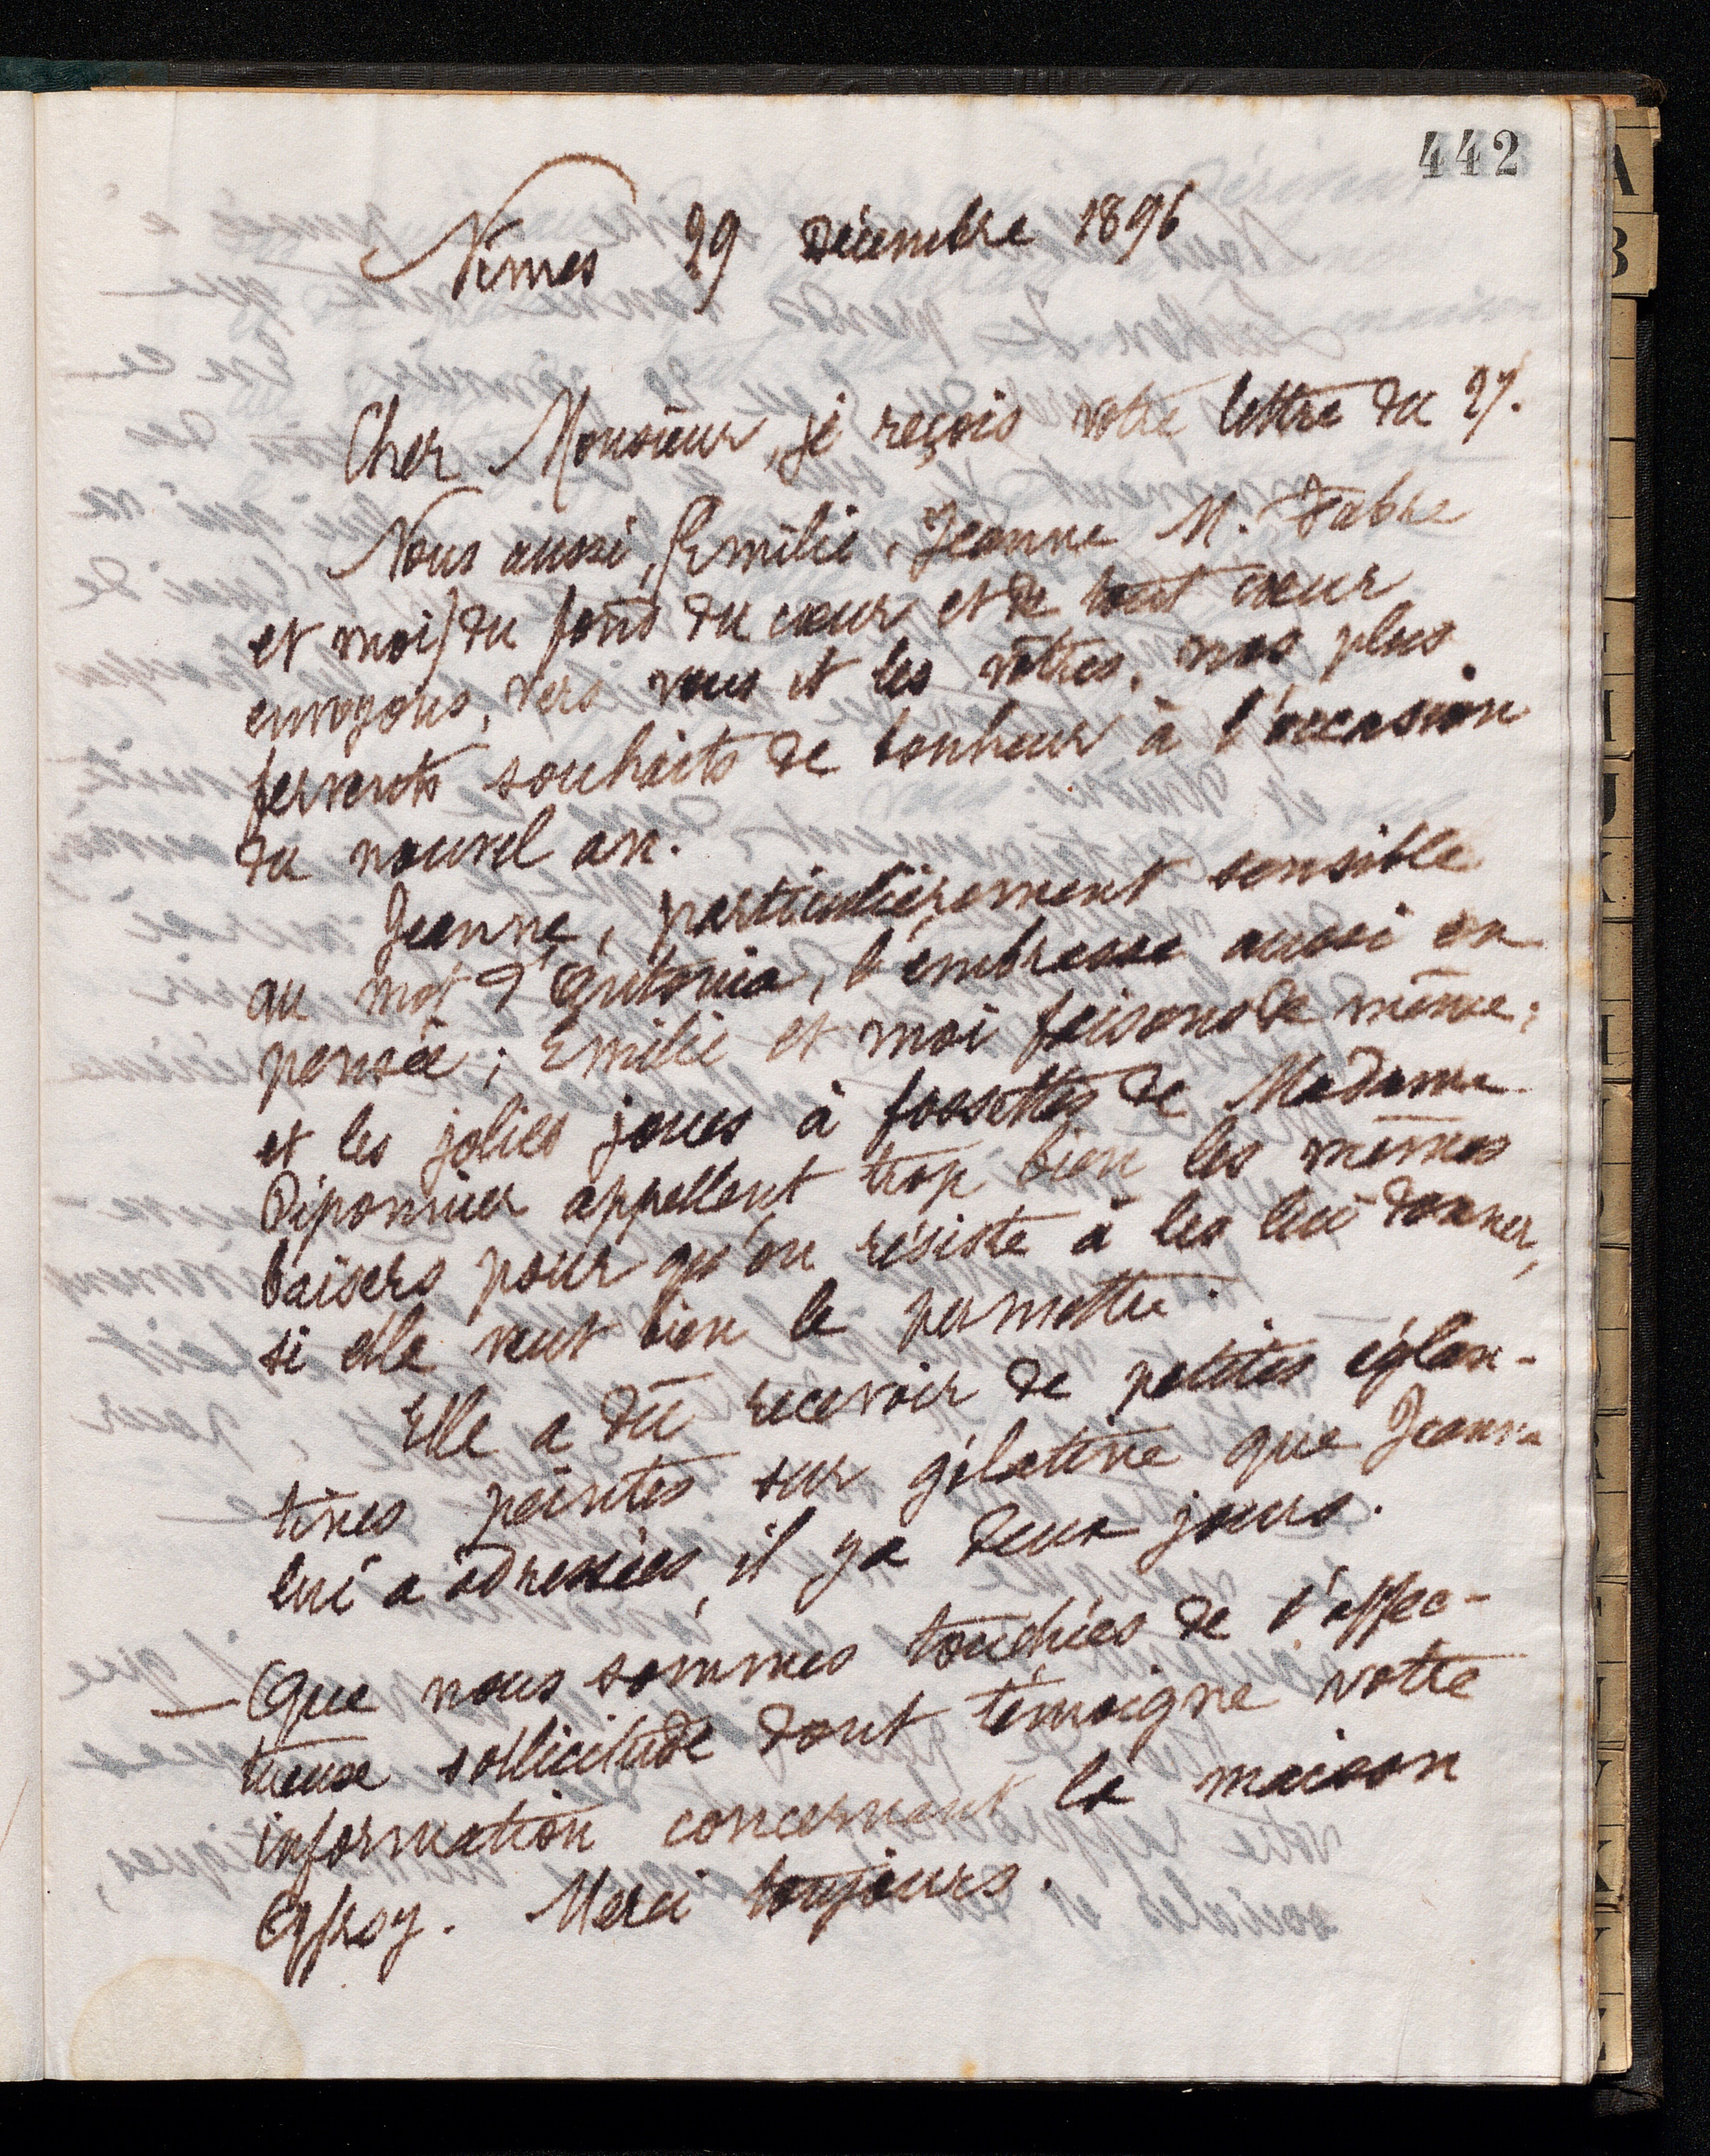 442
Nimes 29 Décembre 1896
Cher Monsieur, je reçois votre lettre du 27.
Nous aussi, (Emilie, Jeanne M. Fabre
et moi) du fond du cœur et de tout cœur
envoyons, vers vous et les vôtres, nos plus
fervents souhaits de bonheur à l'occasion
du nouvel an.
Jeanne, particulièrement sensible
au mot d'Antonia, l'embrasse aussi en
pensée; Emilie et moi faisons de même;
et les jolies joues à fossettes de Madame
Piponnier appellent trop bien les mêmes
baisers pour qu'on résiste à les lui donner,
si elle veut bien le permettre.
Elle a dû recevoir de petites églan-
tines peintes sur gélatine que Jeanne
lui a adressées, il y a deux jours.
— Que nous sommes touchées de l'affec-
tueuse sollicitude dont témoigne votre
information concernant la maison
Offroy. Merci toujours.
A
B